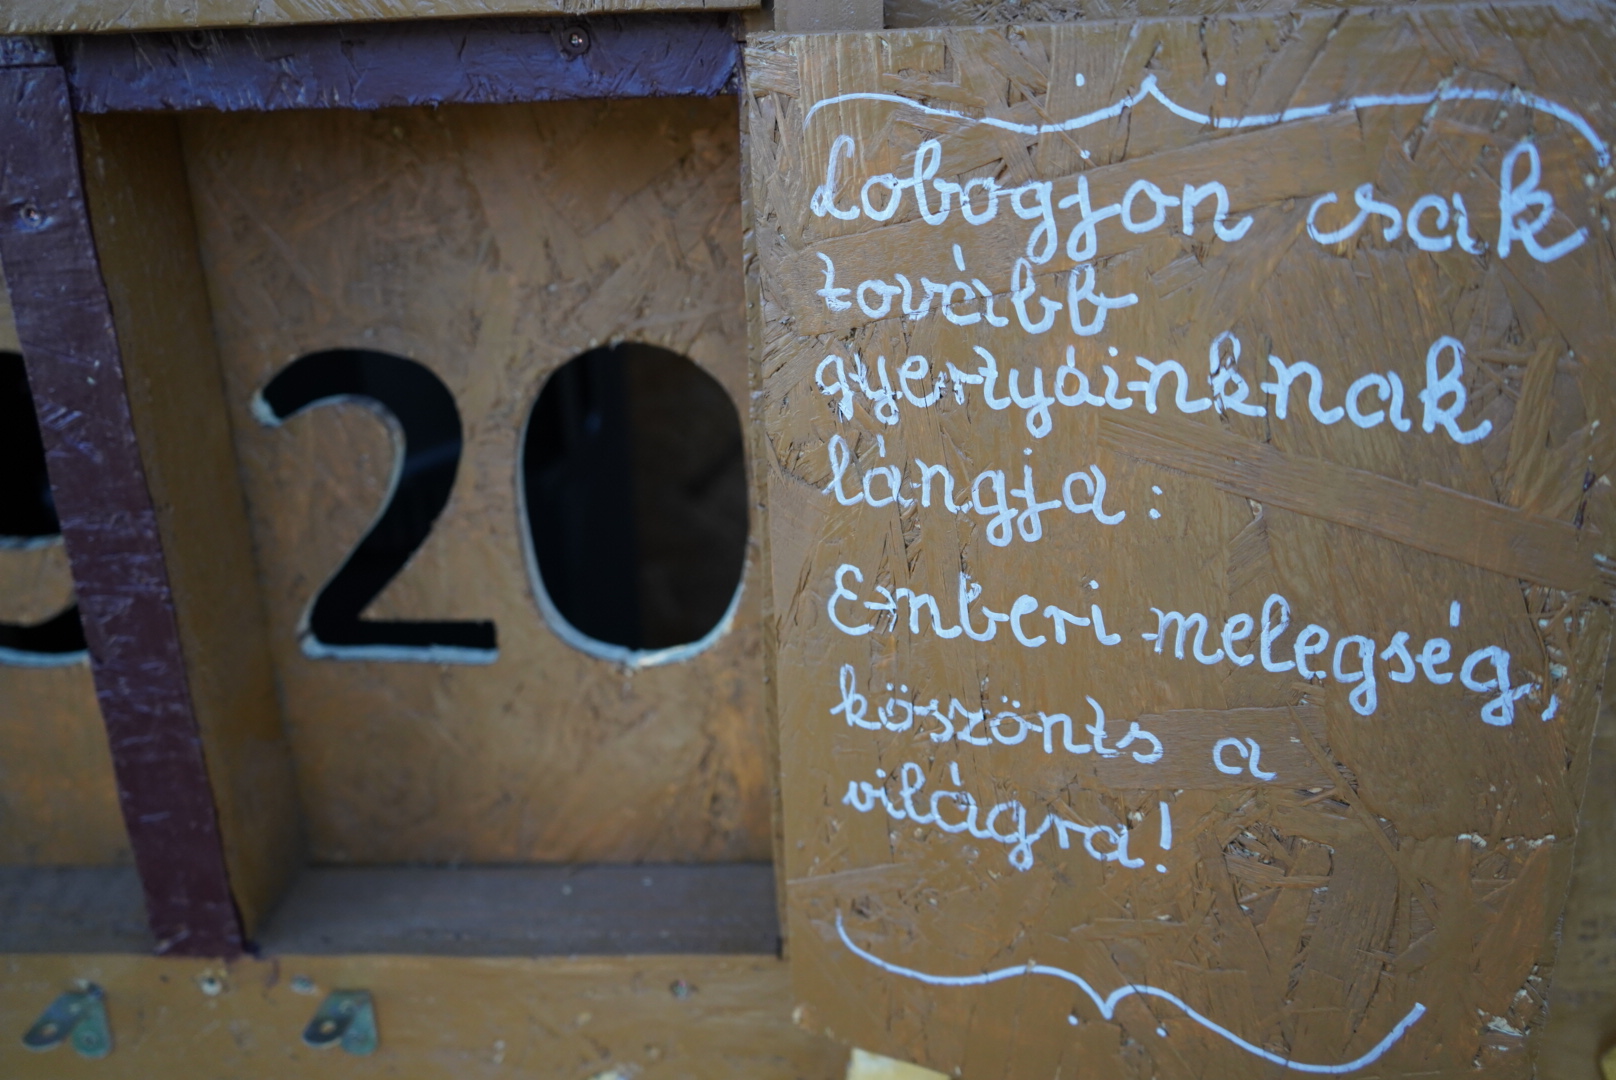 20
Lobogjon csak
tovább
gyertyáinknak
lángja:
Emberi melegség,
köszönts a
világra!